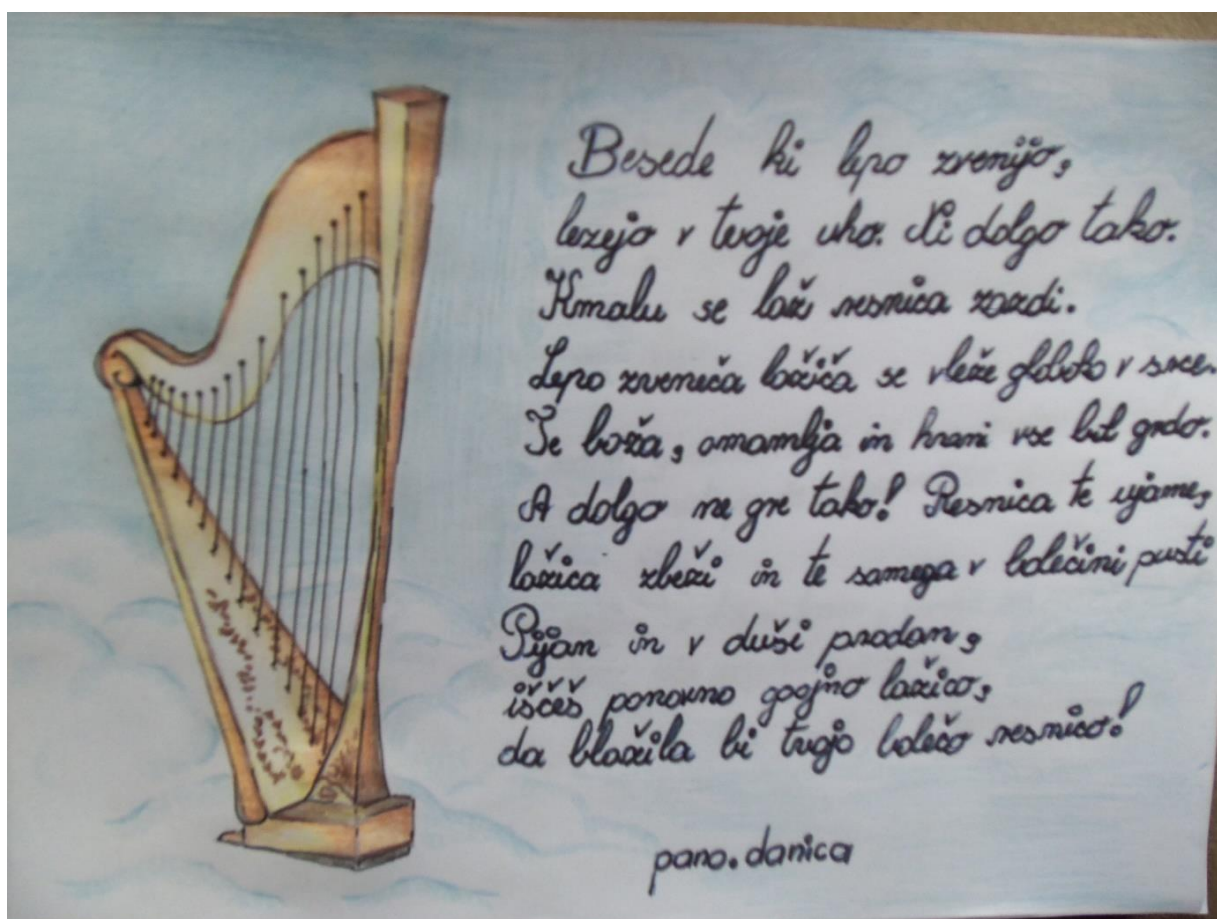 Besede ki lepo zvenijo,
lezejo v tvoje uho. Ni dolgo tako.
Kmalu se laži resnica zazdi.
Lepo zveneča lažiča se vleže globoko v srce.
Te boža, omamlja in hrani vse bil grdo.
A dolgo ne gre tako! Resnica te ujame,
lažica zbeži in te samega v bolečini pusti
Pijan in v duši prodan,
iščeš ponovno gojno lažico,
da blažila bi tvojo bolečo resnico!
pano.danica